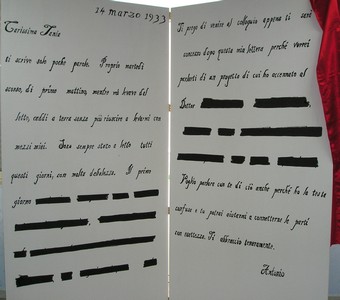 14 marzo 1933
Carissima Tania
ti scrivo solo poche parole. Proprio martedì
scorso, di primo mattino, mentre mi levavo dal
letto, caddi a terra senza più riuscire a levarmi con
mezzi miei. Sono sempre stato a letto tutti
questi giorni, con molta debolezza. Il primo
giorno
Ti prego di venire al colloquio appena ti sarà
concesso dopo questa mia lettera perché vorrei
parlarti di un progetto di cui ha accennato al
Dottor
Voglio parlare con te di ciò anche perché ho la testa
confusa e tu potrai aiutarmi a connetterne le parti
con esattezza. Ti abbraccio teneramente.
Antonio